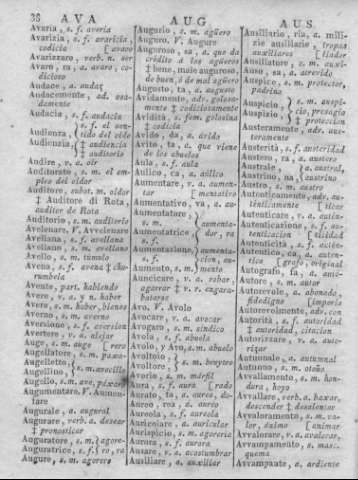 38 AVA AUG. AUS.
Avaria, s. f. averia
Avarizia, s. f. avaricia,
codicia [avaro
Avarizzare, verb. n. ser
Avaro, ra, a. avaro, co-
dicioso
Audace, a. audaz
Audacemente, ad. osa-
damente
Audacia, s. f. audacia
Audienza, s. f. el sen-
tido del oido
Audienzia, ‡ audiencia
‡ auditorio
Audire, v. a. oir
Auditorato, s. m. el em-
pleo del oidor
Auditore, subst. m. oidor
‡ Auditore di Rota,
auditor de Rota
Auditorio, s. m. auditorio
Avelenare, V. Avvelenare
Avellana, s. f. avellana
Avellano, s. m. avellano
Avello, s. m. tumulo
Avena, s. f. avena ‡ cha-
rumbela
Avente, part. habiendo
Avere, v. a. y n. haber
Avere, s. m. haber, bienes
Averno, s. m. averno
Aversione, s. f. aversion
Avertere, v. a. alejar
Auge, s. m. auge [rero
Augellatore, s. m. paxa-
Augelletto,
Augellino, s. m. avecilla
Augello, s. m. ave, páxaro
Augumentare, V. Aumen-
tare
Augurale, a. augural
Augurare, verb. a. desear
‡ pronosticar
Auguratore, s. m. agore-
Auguratrice, s. f. ro, ra
Augure, s. m. agorero
Augurio, s. m. agüero
Auguro, V. Augure
Auguroso, sa, a. que da
crédito á los agüeros
‡ bene, male auguroso,
de buen, ó de mal agüero
Augusto, ta, a. augusto
Avidamente, adv. golosa-
mente ‡ codiciosamente
Avidità, s. fem. golosina
‡ codicia
Avido, da, a. ávido
Avito, ta, a. que viene
de los abuelos
Aula, s. f. aula
Aulico, ca, a. áulico
Aumentare, v. a. aumen-
tar [mentativo
Aumentativo, va, a. au-
Aumentatore,
s. m. aumenta-
Aumentatrice, dor, ra
s. f.
Aumentazione, aumenta-
s. f. cion, au-
Aumento, s. m. mento
Auncicare, v. a. robar,
agarrar ‡ v. r. engara-
batarse
Avo, V. Avolo
Avocare, v. a. avocar
Avogaro, s. m. síndico
Avola, s. f. abuela
Avolo, y Avo, s. m. abuelo
Avoltoio,
Avoltore, s. m. bueytre
Avorio, s. m. marfil
Aura, s. f. aura [rado
Aurato, ta, a. aureo, do-
Aureo, rea, a. aureo
Aureola, s. f. aureola
Auriculare, a. auricular
Auripicio, s. m. agoreria
Aurora, s. f. aurora
Ausare, v. a. acostumbrar
Ausiliare, a. auxîliar
Ausiliario, ria, a. mili-
zie ausiliarie, tropas
auxîliares [liador
Ausiliatore, s. m. auxî-
Auso, sa, a. atrevido
Auspice, s. m. protector,
padrino
Auspicio, s. m. auspi-
Auspizio, cio, presagio
‡ proteccion
Austeramente, adv. aus-
teramente
Austerità, s. f. austeridad
Austero, ra, a. austero
Australe, a. austral,
Austrino, na, austrino
Austro, s. m. austro
Autenticamente, adv. au-
ténticamente [ticar
Autenticare, v. a. auten-
Autenticazione, s. f. au-
tenticacion [ticidad
Autenticità, s. f. autén-
Autentico, ca, a. auten-
tica [grafo, original
Autografo, fa, a. autó-
Autore, s. m. autor
Autorevole, a. abonado,
fidedigno [imperio
Autorevolmente, adv. con
Autorità, s. f. autoridad
‡ autoridad, citacion
Autorizzare, v. a. auto-
rizar
Autunnale, a. autumnal
Autunno, s. m. otoño
Avvallamento, s. m. hon-
dura, hoyo
Avvallare, verb. a. baxar,
descender ‡ desalentar
Avvaloramento, s. m. va-
lor, ánimo [animar
Avvalorare, v. a. avalorar,
Avvampamento, s. m. chas-
quema
Avvampante, a. ardiente